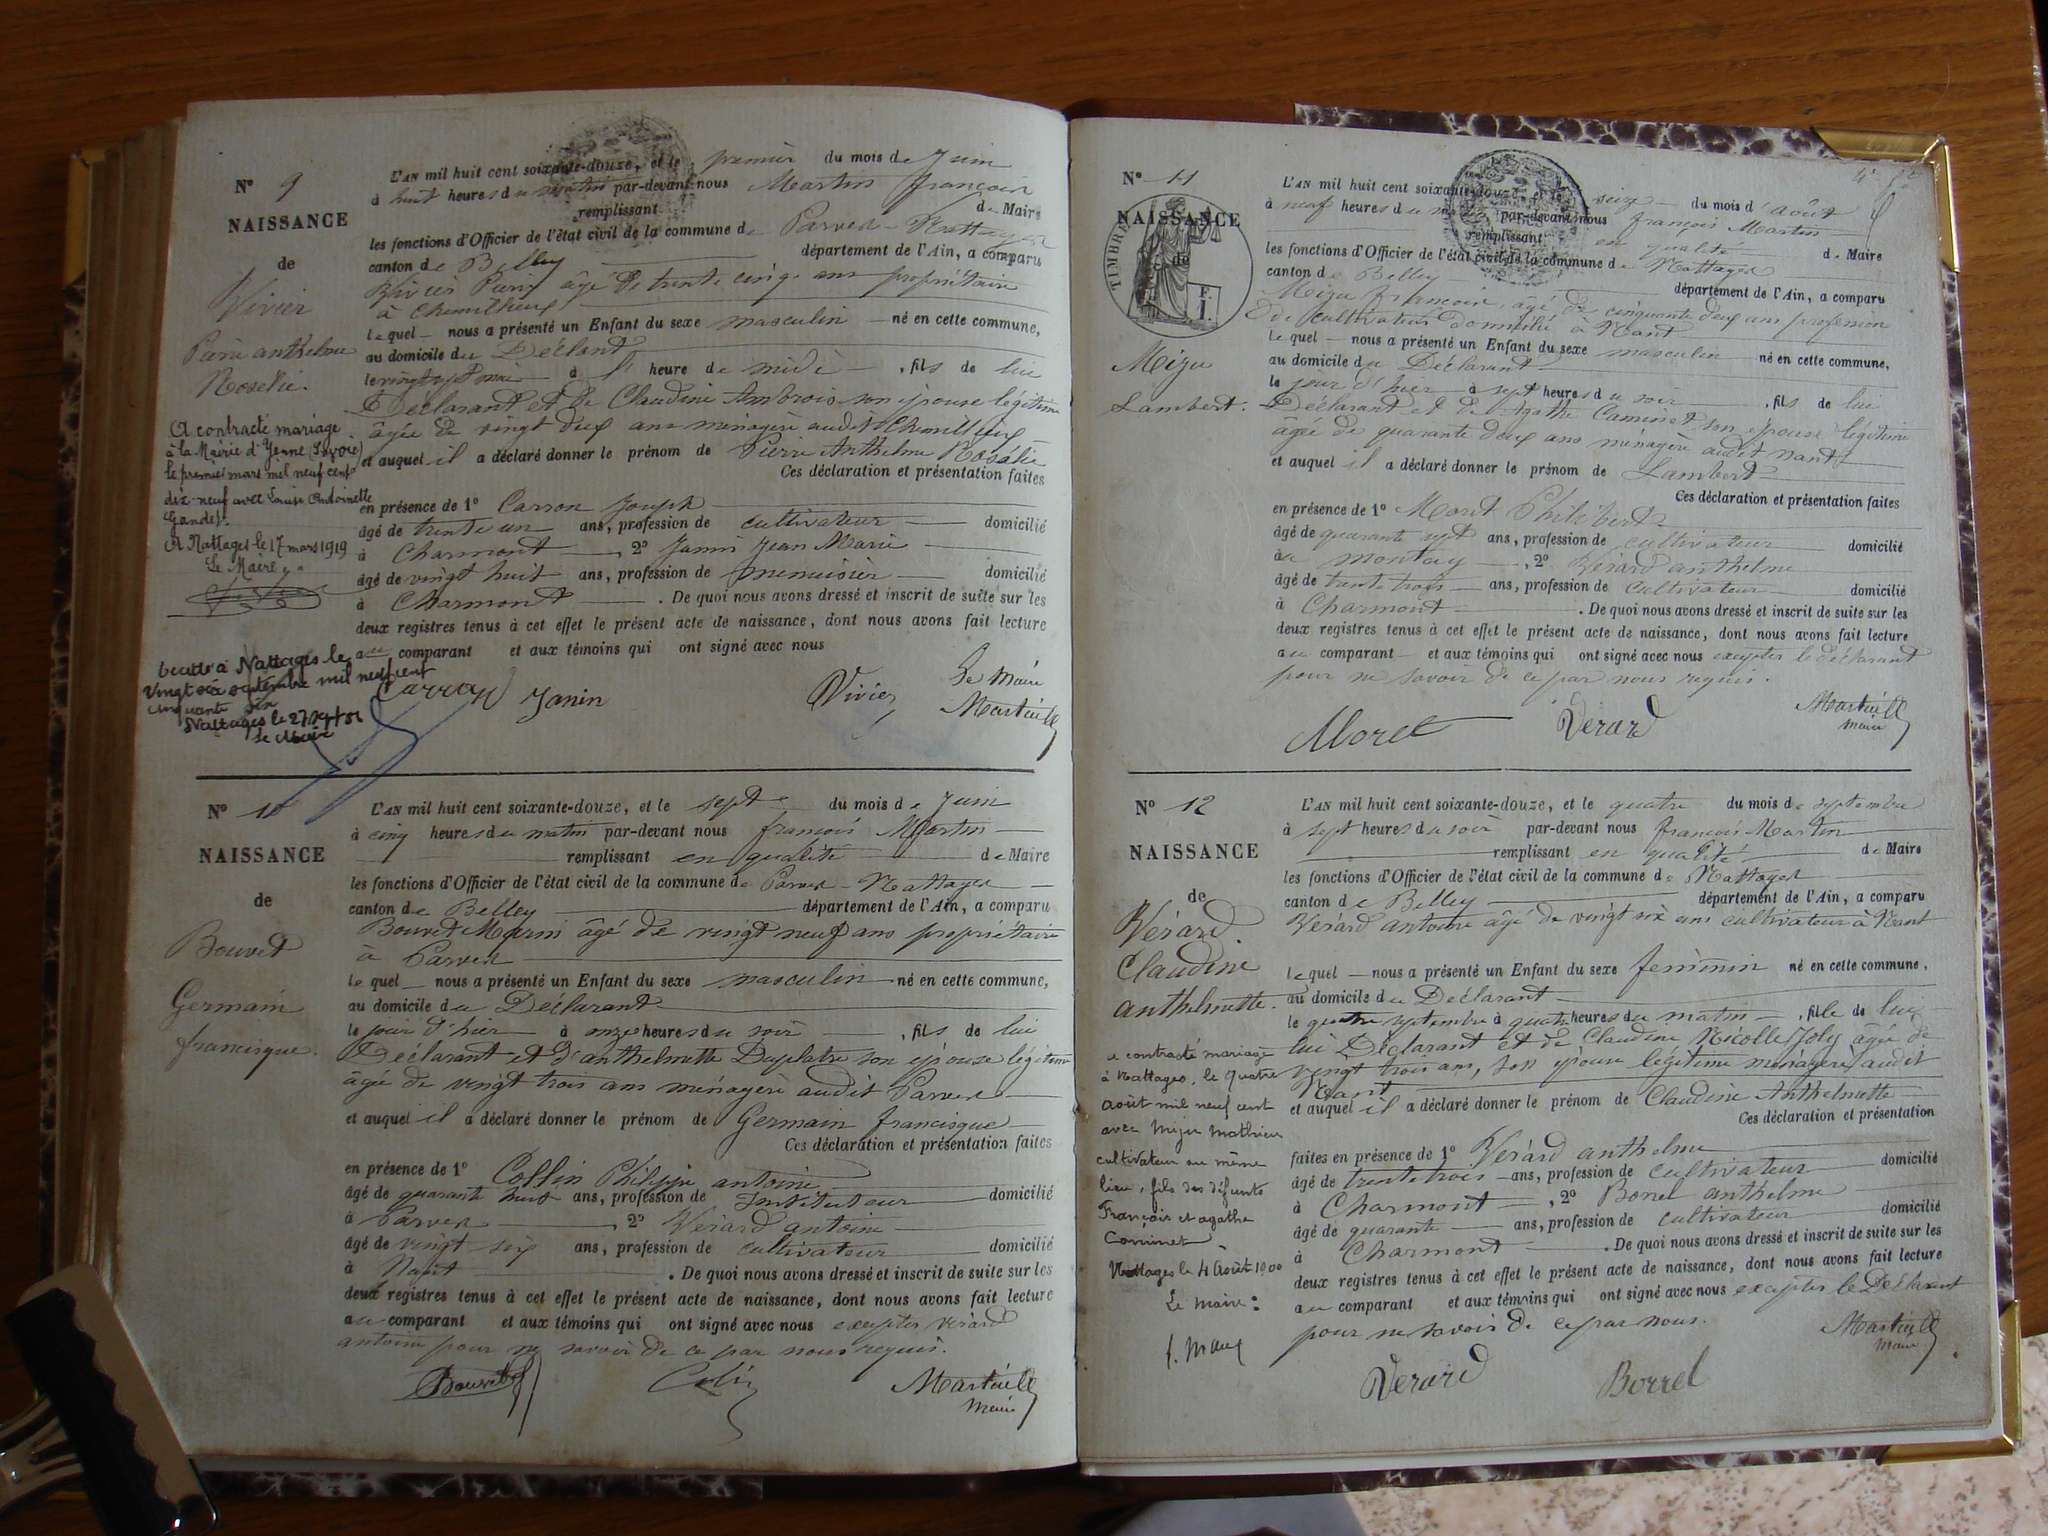 Nº 9
NAISSANCE
de
Vivier
anthelme
Rosélie.
A contracté mariage
à la Mairie d'Yenne (Savoie)
le premier mars mil neuf cent
dix-neuf avec Louise Antoinette
A Nattages le 17 mars 1919
Le Maire
à Nattages le
vingt six septembre mil neuf cent
cinquante six
Nattages le 27 sept 56
Le Maire
L'AN mil huit cent soixante-douze, et le premier du mois de Juin
à huit heures du matin par-devant nous Martin françois
remplissant de Maire
les fonctions d'Officier de l'état civil de la commune de Parves-Nattages
canton de Belley département de l'Ain, a comparu
âgé de trente cinq ans propriétaire
à
le quel nous a présenté un Enfant du sexe masculin né en cette commune,
au domicile du Déclarant
le vingt sept mai à heure de midi, fils de lui
Déclarant et de Claudine Ambrois son épouse légitime
âgée de vingt deux ans ménagère audit
et auquel il a déclaré donner le prénom de Pierre Anthelme Rosélie
Ces déclaration et présentation faites
en présence de 1º Carron Joseph
âgé de trente un ans, profession de cultivateur domicilié
à Charmont, 2º Janin Jean Marie
âgé de vingt huit ans, profession de menuisier domicilié
à Charmont. De quoi nous avons dressé et inscrit de suite sur les
deux registres tenus à cet effet le présent acte de naissance, dont nous avons fait lecture
au comparant et aux témoins qui ont signé avec nous
Carron Janin Vivier Le Maire
Martin
Nº 10
NAISSANCE
de
Bouvet
Germain
francisque.
L'AN mil huit cent soixante-douze, et le sept du mois de Juin
à cinq heures du matin par-devant nous françois Martin
remplissant en qualité de Maire
les fonctions d'Officier de l'état civil de la commune de Parves-Nattages
canton de Belley département de l'Ain, a comparu
Bouvet âgé de vingt neuf ans propriétaire
à Parves
le quel nous a présenté un Enfant du sexe masculin né en cette commune,
au domicile du Déclarant
le jour d'hier à onze heures du soir, fils de lui
Déclarant et d'anthelmette Duplatre son épouse légitime
âgée de vingt trois ans ménagère audit Parves
et auquel il a déclaré donner le prénom de Germain francisque
Ces déclaration et présentation faites
en présence de 1º Collin Philippe antoine
âgé de quarante huit ans, profession de Instituteur domicilié
à Parves, 2º Vérard antoine
âgé de vingt six ans, profession de cultivateur domicilié
à Nant. De quoi nous avons dressé et inscrit de suite sur les
deux registres tenus à cet effet le présent acte de naissance, dont nous avons fait lecture
au comparant et aux témoins qui ont signé avec nous excepter Vérard
antoine pour ne savoir de ce par nous requis.
Bouvet Colin Martin
Maire
Nº 11
NAISSANCE
de
TIMBRE
F.
1.
Mizu
Lambert.
L'AN mil huit cent soixante-douze, et le seize du mois d'août
à neuf heures du matin, par-devant nous françois Martin
remplissant en qualité de Maire
les fonctions d'Officier de l'état civil de la commune de Nattages
canton de Belley département de l'Ain, a comparu
Mizu françois, âgé de cinquante deux ans profession
de cultivateur domicilié à Nant
le quel nous a présenté un Enfant du sexe masculin né en cette commune,
au domicile du Déclarant
le jour d'hier à sept heures du soir, fils de lui
Déclarant et de Agathe Cominet son épouse légitime
âgée de quarante deux ans ménagère audit Nant
et auquel il a déclaré donner le prénom de Lambert
Ces déclaration et présentation faites
en présence de 1º Moret Philibert
âgé de quarante sept ans, profession de cultivateur domicilié
au montay, 2º Vérard anthelme
âgé de trente trois ans, profession de cultivateur domicilié
à Charmont. De quoi nous avons dressé et inscrit de suite sur les
deux registres tenus à cet effet le présent acte de naissance, dont nous avons fait lecture
au comparant et aux témoins qui ont signé avec nous excepter le déclarant
pour ne savoir de ce par nous requis.
Moret Verard Martin
maire
Nº 12
NAISSANCE
de
Vérard
Claudine
anthelmette.
a contracté mariage
à Nattages, le quatre
août mil neuf cent
avec Mizu Mathieu
cultivateur au même
lieu, fils des défunts
François et agathe
Cominet
Nattages le 4 Août 1900
Le maire:
L'AN mil huit cent soixante-douze, et le quatre du mois de septembre
à sept heures du soir par-devant nous françois Martin
remplissant en qualité de Maire
les fonctions d'Officier de l'état civil de la commune de Nattages
canton de Belley département de l'Ain, a comparu
Vérard antoine âgé de vingt six ans cultivateur à Nant
le quel nous a présenté un Enfant du sexe féminin né en cette commune,
au domicile du Déclarant
le quatre septembre à quatre heures du matin, fille de lui
lui Déclarant et de Claudine Nicolle Joly âgée de
vingt trois ans, son épouse légitime ménagère audit
Nant
et auquel il a déclaré donner le prénom de Claudine Anthelmette
Ces déclaration et présentation
faites en présence de 1º Vérard anthelme
âgé de trente trois ans, profession de cultivateur domicilié
à Charmont, 2º Borrel anthelme
âgé de quarante ans, profession de cultivateur domicilié
à Charmont. De quoi nous avons dressé et inscrit de suite sur les
deux registres tenus à cet effet le présent acte de naissance, dont nous avons fait lecture
au comparant et aux témoins qui ont signé avec nous excepter le Déclarant
pour ne savoir de ce par nous.
Verard Borrel Martin
Maire